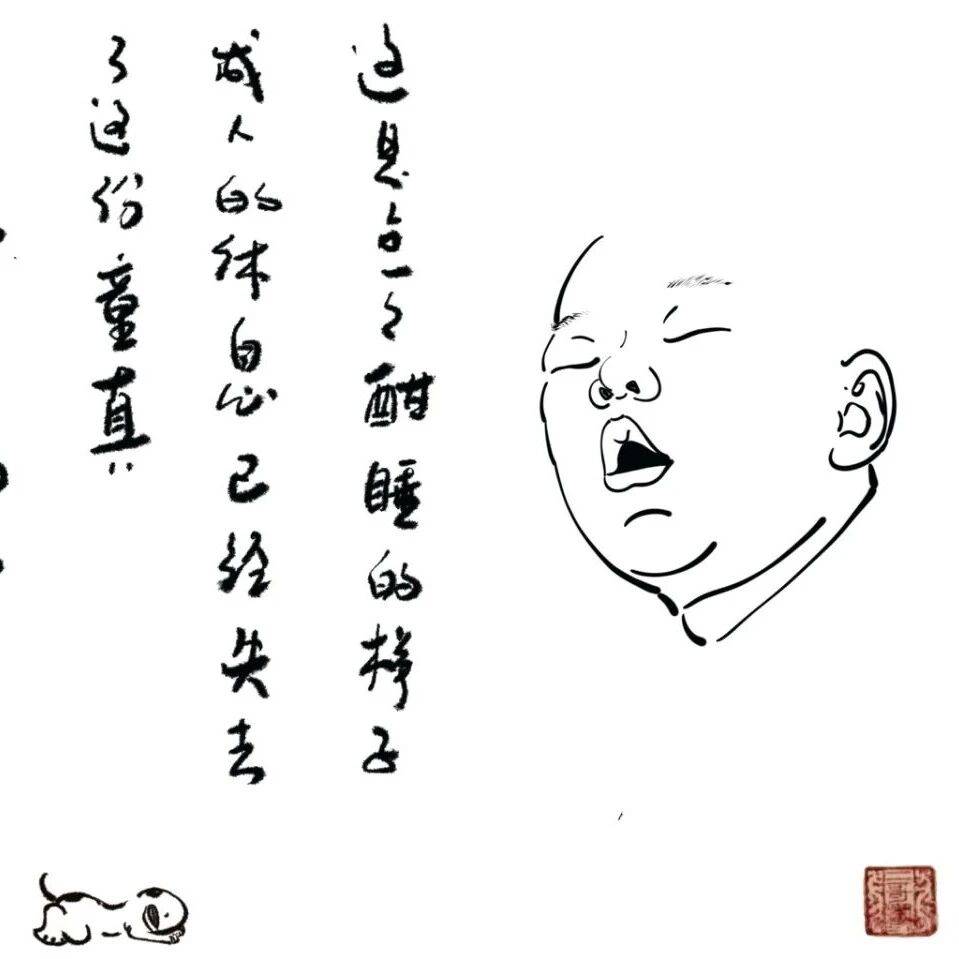 这是点々酣睡的样子
成人的休息已经失去
了这份童真